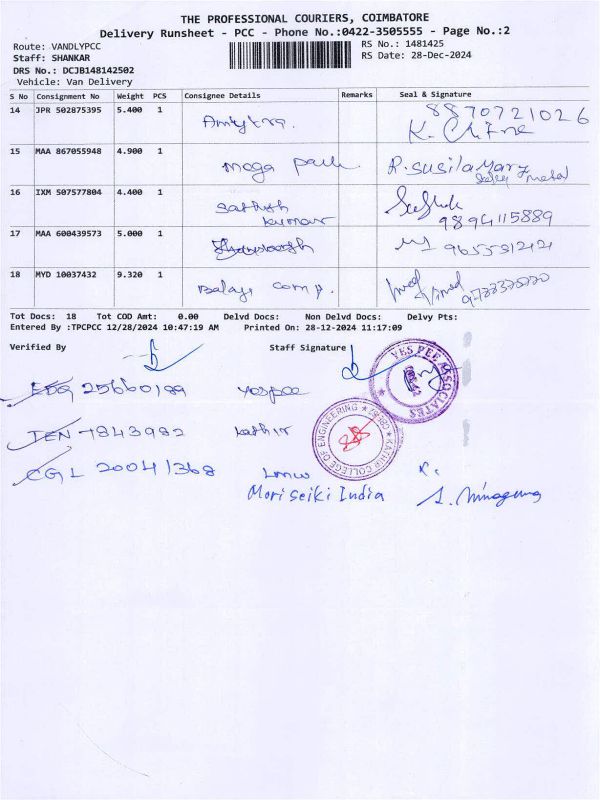 THE PROFESSIONAL COURIERS, COIMBATORE
Delivery Runsheet - PCC - Phone No.:0422-3505555 - Page No.:2
Route: VANDLYPCC
RS No.: 1481425
Staff: SHANKAR
RS Date: 28-Dec-2024
DRS No.: DCJB148142502
Vehicle: Van Delivery
S No Consignment No Weight PCS Consignee Details Remarks Seal & Signature
14 JPR 502875395 5.400 1 8870721026
15 MAA 867055948 4.900 1 mega R. Susila
16 IXM 507577804 4.400 1 Sathish
kumar 9894115889
17 MAA 600439573 5.000 1
18 MYD 10037432 9.320 1 Balaji comp.
Tot Docs: 18 Tot COD Amt: 0.00 Delvd Docs: Non Delvd Docs: Delvy Pts:
Entered By :TPCPCC 12/28/2024 10:47:19 AM Printed On: 28-12-2024 11:17:09
Verified By Staff Signature
YES PEE ASSOCIATES
25660189 yespee
7843982 kathir
KATHIR COLLEGE OF ENGINEERING
CGL 20041368 Lmw
Mori Seiki India